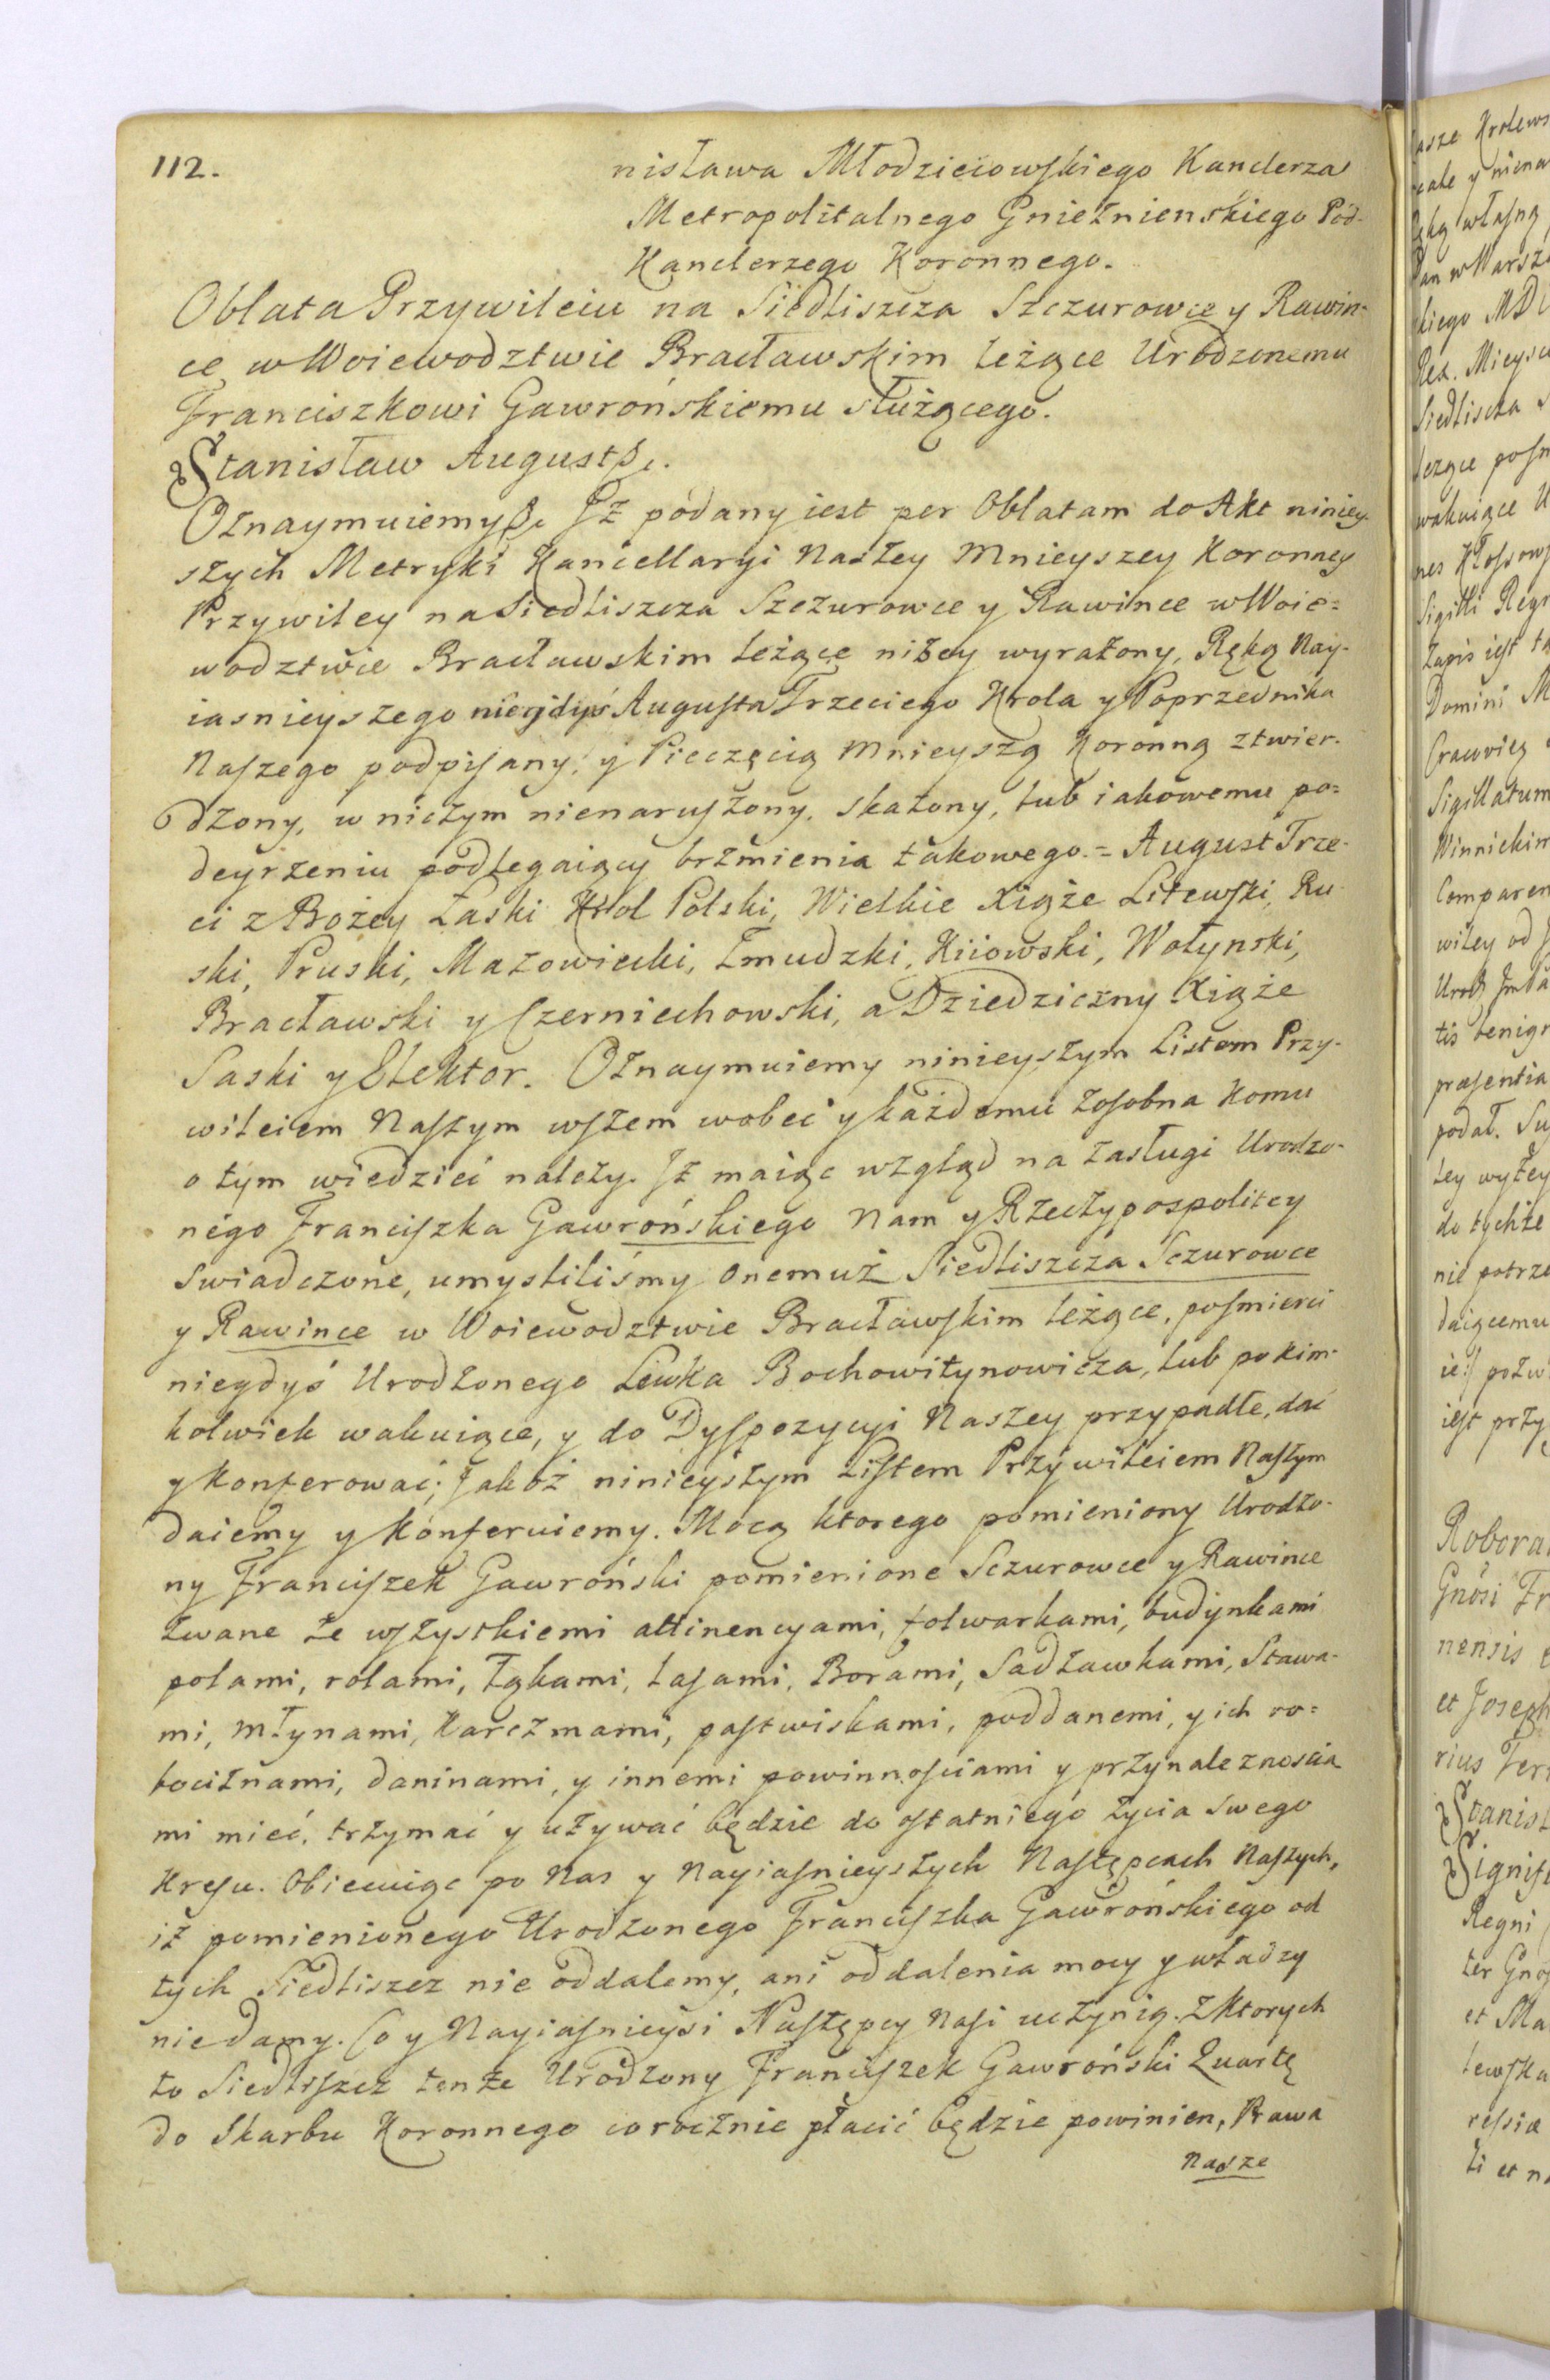 112.
nisława Młodzieiowskiego Kanclerza
Metropolitalnego Gnieznienskiego Pod-
Kanclerzego Koronnego.
Oblata Przywileiu na Siedliszcza Szczurowce y Rawin-
ce w Woiewodztwie Bracławskim leżące Urodzonemu
Franciszkowi Gawrońskiemu służącego.
Stanisław August &c.
Oznaymuiemy &c. Iż podany iest per Oblatam do Akt niniey-
szych Metryki Kancellaryi Naszey Mnieyszey Koronney
Przywiley na Siedliszcza Szczurowce y Rawince w Woie=
wodztwie Bracławskim leżące niżey wyrażony, Ręką Nay-
iasnieyszego niegdyś Augusta Trzeciego Krola y Poprzednika
Naszego podpisany, y Pieczęcią Mnieyszą Koronną ztwier-
dzony, w niczym nienaruszony, skażony, lub iakowemu po=
deyrzeniu podlegaiący brzmienia takowego.= August Trze-
ci z Bożey Łaski Krol Polski, Wielkie Xiąże Litewski, Ru-
ski, Pruski, Mazowiecki, Żmudzki, Kiiowski, Wołynski,
Bracławski y Czerniechowski, a Dziedziczny Xiąże
Saski y Elektor. Oznaymuiemy ninieyszym Listem Przy-
wileiem Naszym wszem wobec y każdemu zosobna komu
o tym wiedzieć należy. Iż maiąc wzgląd na zasługi Urodzo-
nego Franciszka Gawrońskiego Nam y Rzeczypospolitey
swiadczone, umyśliliśmy onemuż Siedliszcza Sczurowce
y Rawince w Woiewodztwie Bracławskim leżące, posmierci
niegdyś Urodzonego Lewka Bochowitynowicza, lub po kim-
kolwiek wakuiące, y do Dyspozycyi Naszey przypadłe, dać
y Konferować; Jakoż ninieyszym Listem Przywileiem Naszym
daiemy y Konferuiemy. Mocą ktorego pomieniony Urodzo-
ny Franciszek Gawroński pomienione Sczurowce y Rawince
zwane ze wszystkiemi attinencyami, folwarkami, budynkami
polami, rolami, Łąkami, lasami, Borami, Sadzawkami, Stawa-
mi, Młynami, Karczmami, pastwiskami, poddanemi, y ich ro=
bociznami, daninami, y innemi powinnosciami y przynaleznoscia
mi mieć, trzymać y używać będzie do ostatniego życia swego
Kresu. Obiecuiąc po Nas y Nayiasnieyszych Następcach Naszych,
iż pomienionego Urodzonego Franciszka Gawrońskiego od
tych Siedliszcz nie oddalemy, ani oddalenia mocy y władzy
niedamy. Co y Nayiasnieysi Następcy Nasi uczynią. Z ktorych
to Siedliszcz tenże Urodzony Franciszek Gawroński Quartę
do Skarbu Koronnego corocznie płacić będzie powinien, Prawa
Nasze